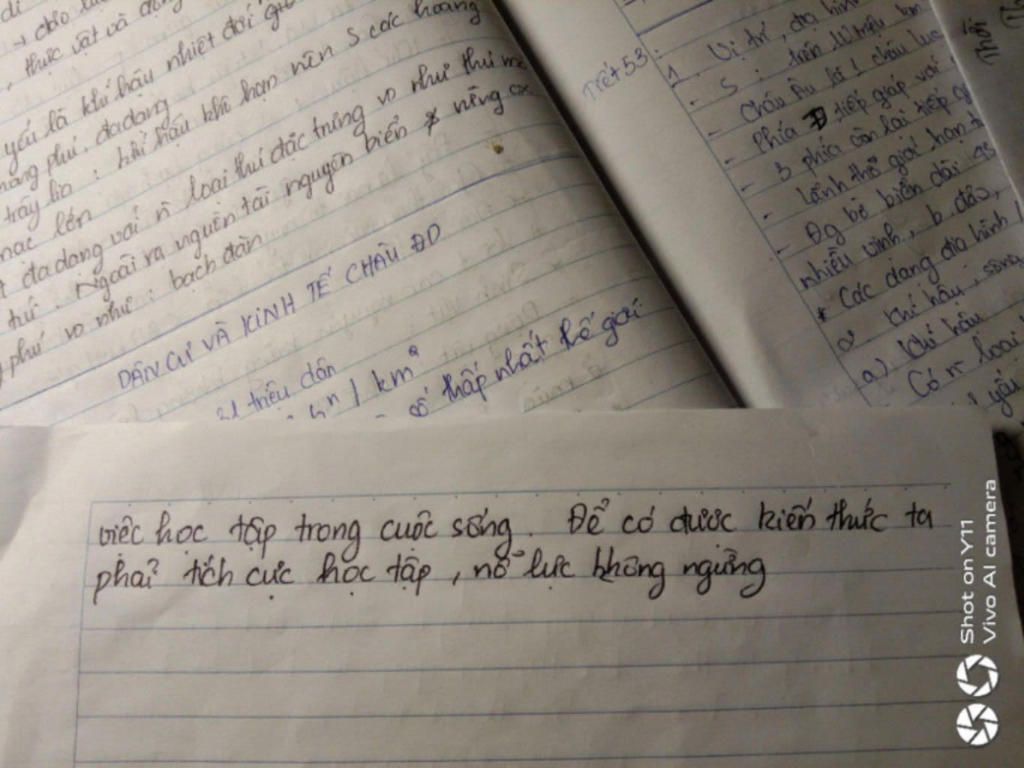 → đảo
thực vật và động
yếu là khí hậu nhiệt đới
phong phú, đa dạng
: khí hậu khô hạn nên S các hoang
mạc lớn
đa dạng với n loài thú đặc trưng vd như thú mỏ
. Ngoài ra nguồn tài nguyên biển
phú vd như : bạch đàn
DÂN CƯ VÀ KINH TẾ CHÂU ĐD
triệu dân
/ km²
có thấp nhất thế giới
Tiết 53 :
1. Vị trí, địa hình
- S : trên 10 triệu km
- Châu Âu là 1 châu lục
- Phía Đ tiếp giáp với
- 3 phía còn lại tiếp
- Lãnh thổ giới hạn t
- Đg bờ biển dài
nhiều vịnh, b đảo,
* Các dạng địa hình
2 Khí hậu, sông
a) Khí hậu
Có n loại
yếu
Thời
việc học tập trong cuộc sống. Để có được kiến thức ta
phải tích cực học tập, nỗ lực không ngừng
Shot on Y11
Vivo AI camera